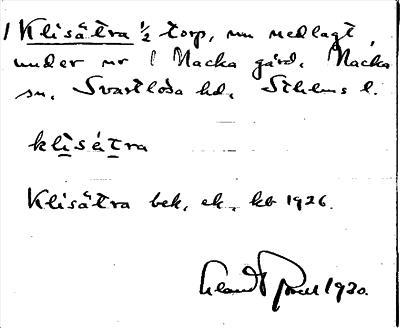 1 Klisätra 1/2 torp, nu nedlagt,
under nr 1 Nacka gård, Nacka
sn, Svartlösa hd, Sthlms l.
klisätra
Klisätra bek, ek. kb 1926.
1930.